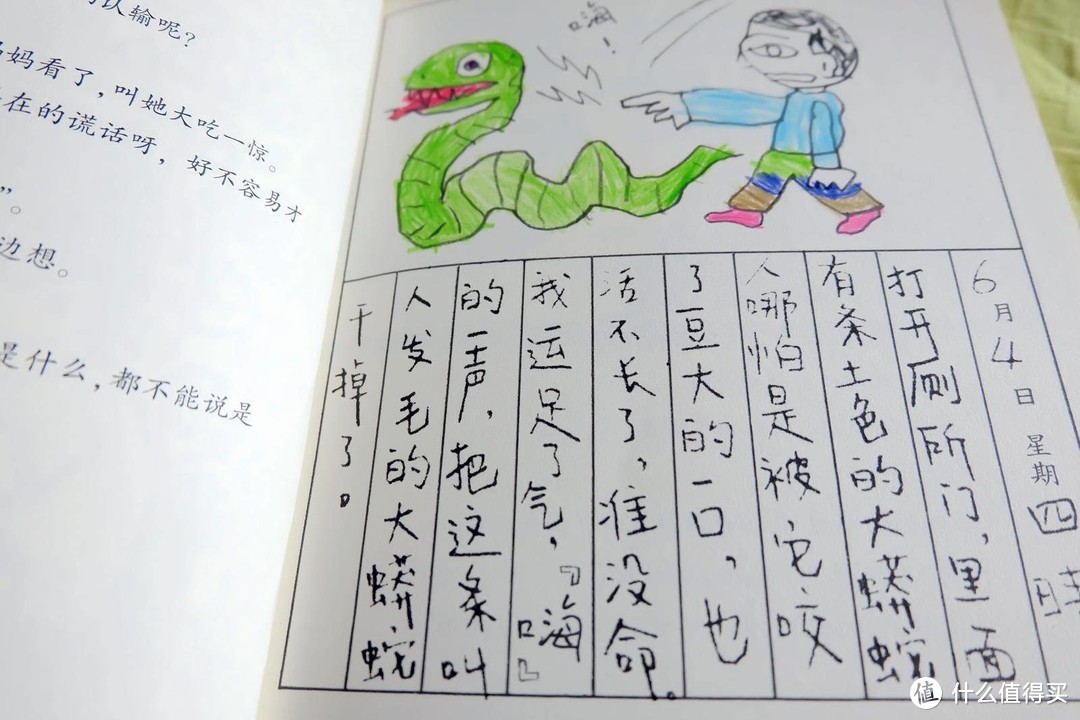 认输呢？
妈看了，叫她大吃一惊。
在的谎话呀，好不容易才
”。
边想。
是什么，都不能说是
嗨！
6月4日 星期四
打开厕所门，里面
有条土色的大蟒蛇
人哪怕是被它咬
了豆大的一口，也
活不长了，准没命。
我运足了气，『嗨』
的一声，把这条叫
人发毛的大蟒蛇
干掉了。
值 什么值得买